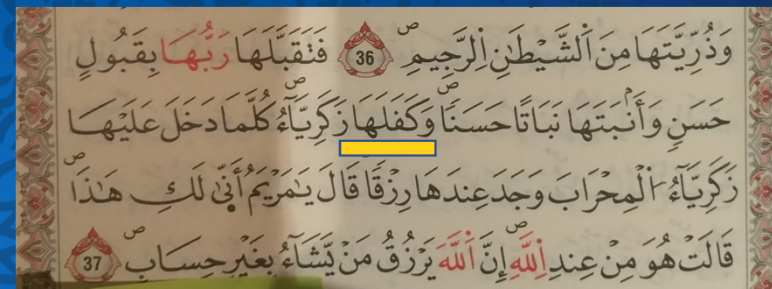 وَذُرِّيَّتَهَا مِنَ اَ۬لشَّيْطَٰنِ اِ۬لرَّجِيمِۖ 36 فَتَقَبَّلَهَا رَبُّهَا بِقَبُولٍ
حَسَنٖ وَأَنۢبَتَهَا نَبَاتًا حَسَنٗاۖ وَكَفَلَهَا زَكَرِيَّآءُۖ كُلَّمَا دَخَلَ عَلَيْهَا
زَكَرِيَّآءُ اُ۬لْمِحْرَابَ وَجَدَ عِندَهَا رِزْقٗا قَالَ يَٰمَرْيَمُ أَنّ۪ىٰ لَكِ هَٰذَاۖ
قَالَتْ هُوَ مِنْ عِندِ اِ۬للَّهِۖ إِنَّ اَ۬للَّهَ يَرْزُقُ مَنْ يَّشَآءُ بِغَيْرِ حِسَابٍۖ 37